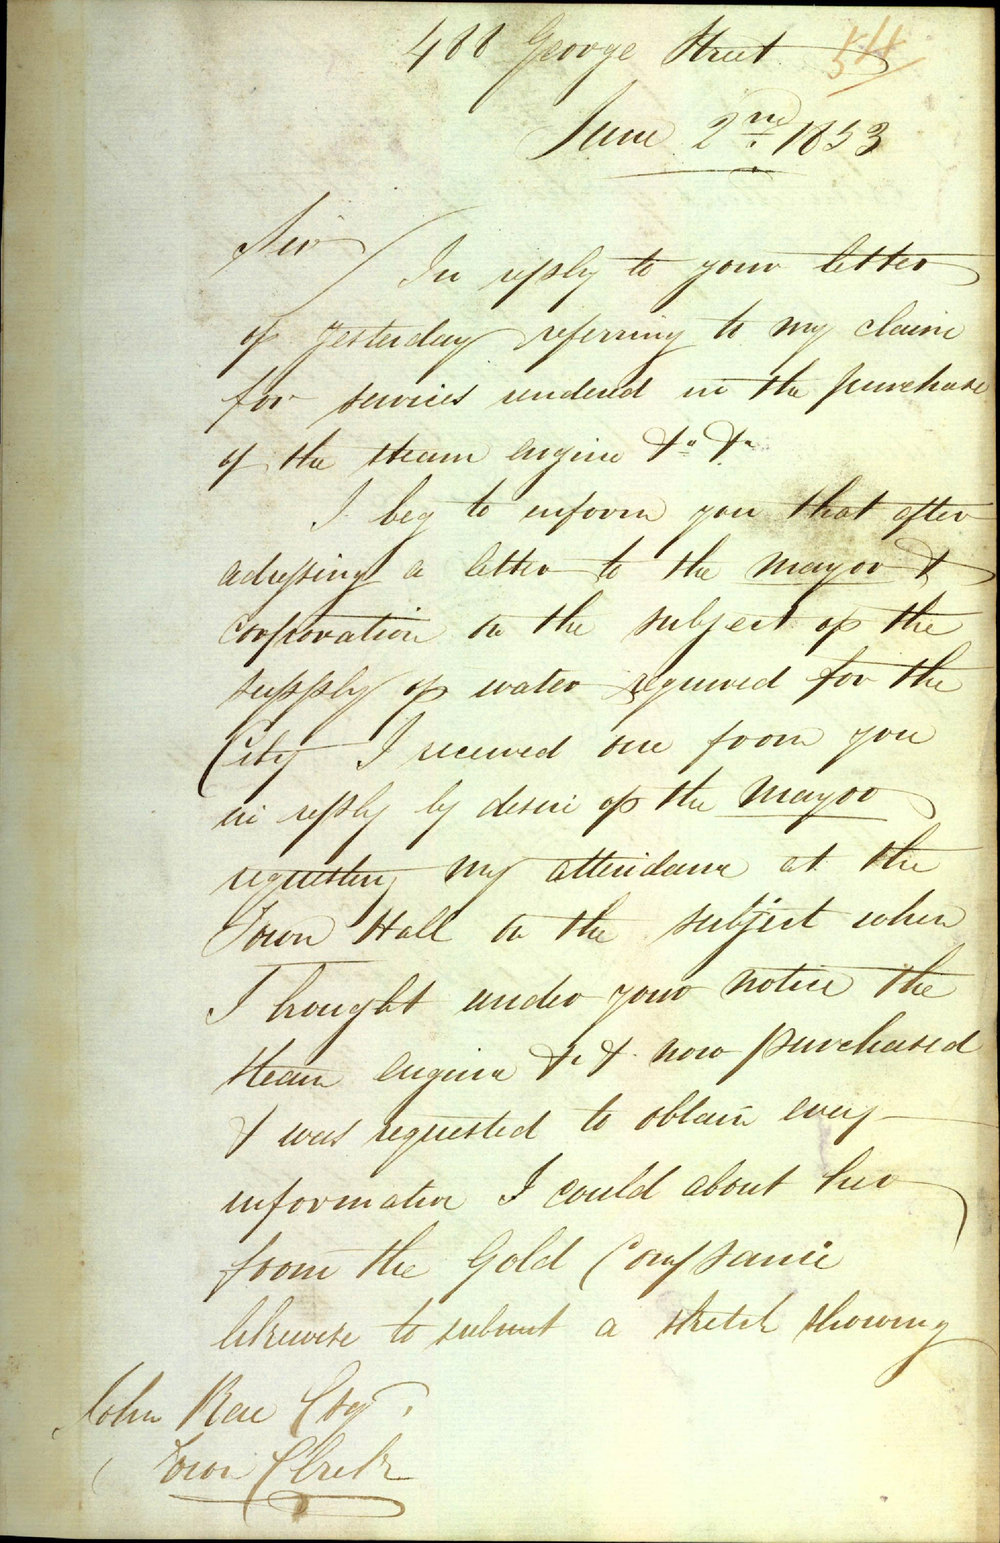 488 George Street 54
June 2nd. 1853
Sir
In reply to your letter
of yesterday referring to my claim
for services rendered in the purchase
of the steam engine &c &c
I beg to inform you that after
adressing a letter to the Mayor &
Corporation on the subject of the
supply of water required for the
City I received one from you
in reply by desire of the Mayor
requesting my attendance at the
Town Hall on the subject when
I brought under your notice the
steam engine &c & now purchased
& was requested to obtain every
information I could about her
from the Gold Companie
likewise to submit a sketch showing
John Rae Esqr.
Town Clerk